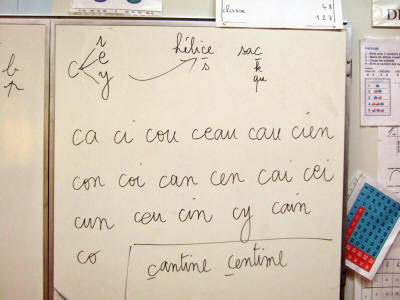 classe. 48
127
i
hélice sac
c e s k
y qu
b
p
ca ci cou ceau cau cien
con coi can cen cai cei
cun ceu cin cy cain
co
cantine centime